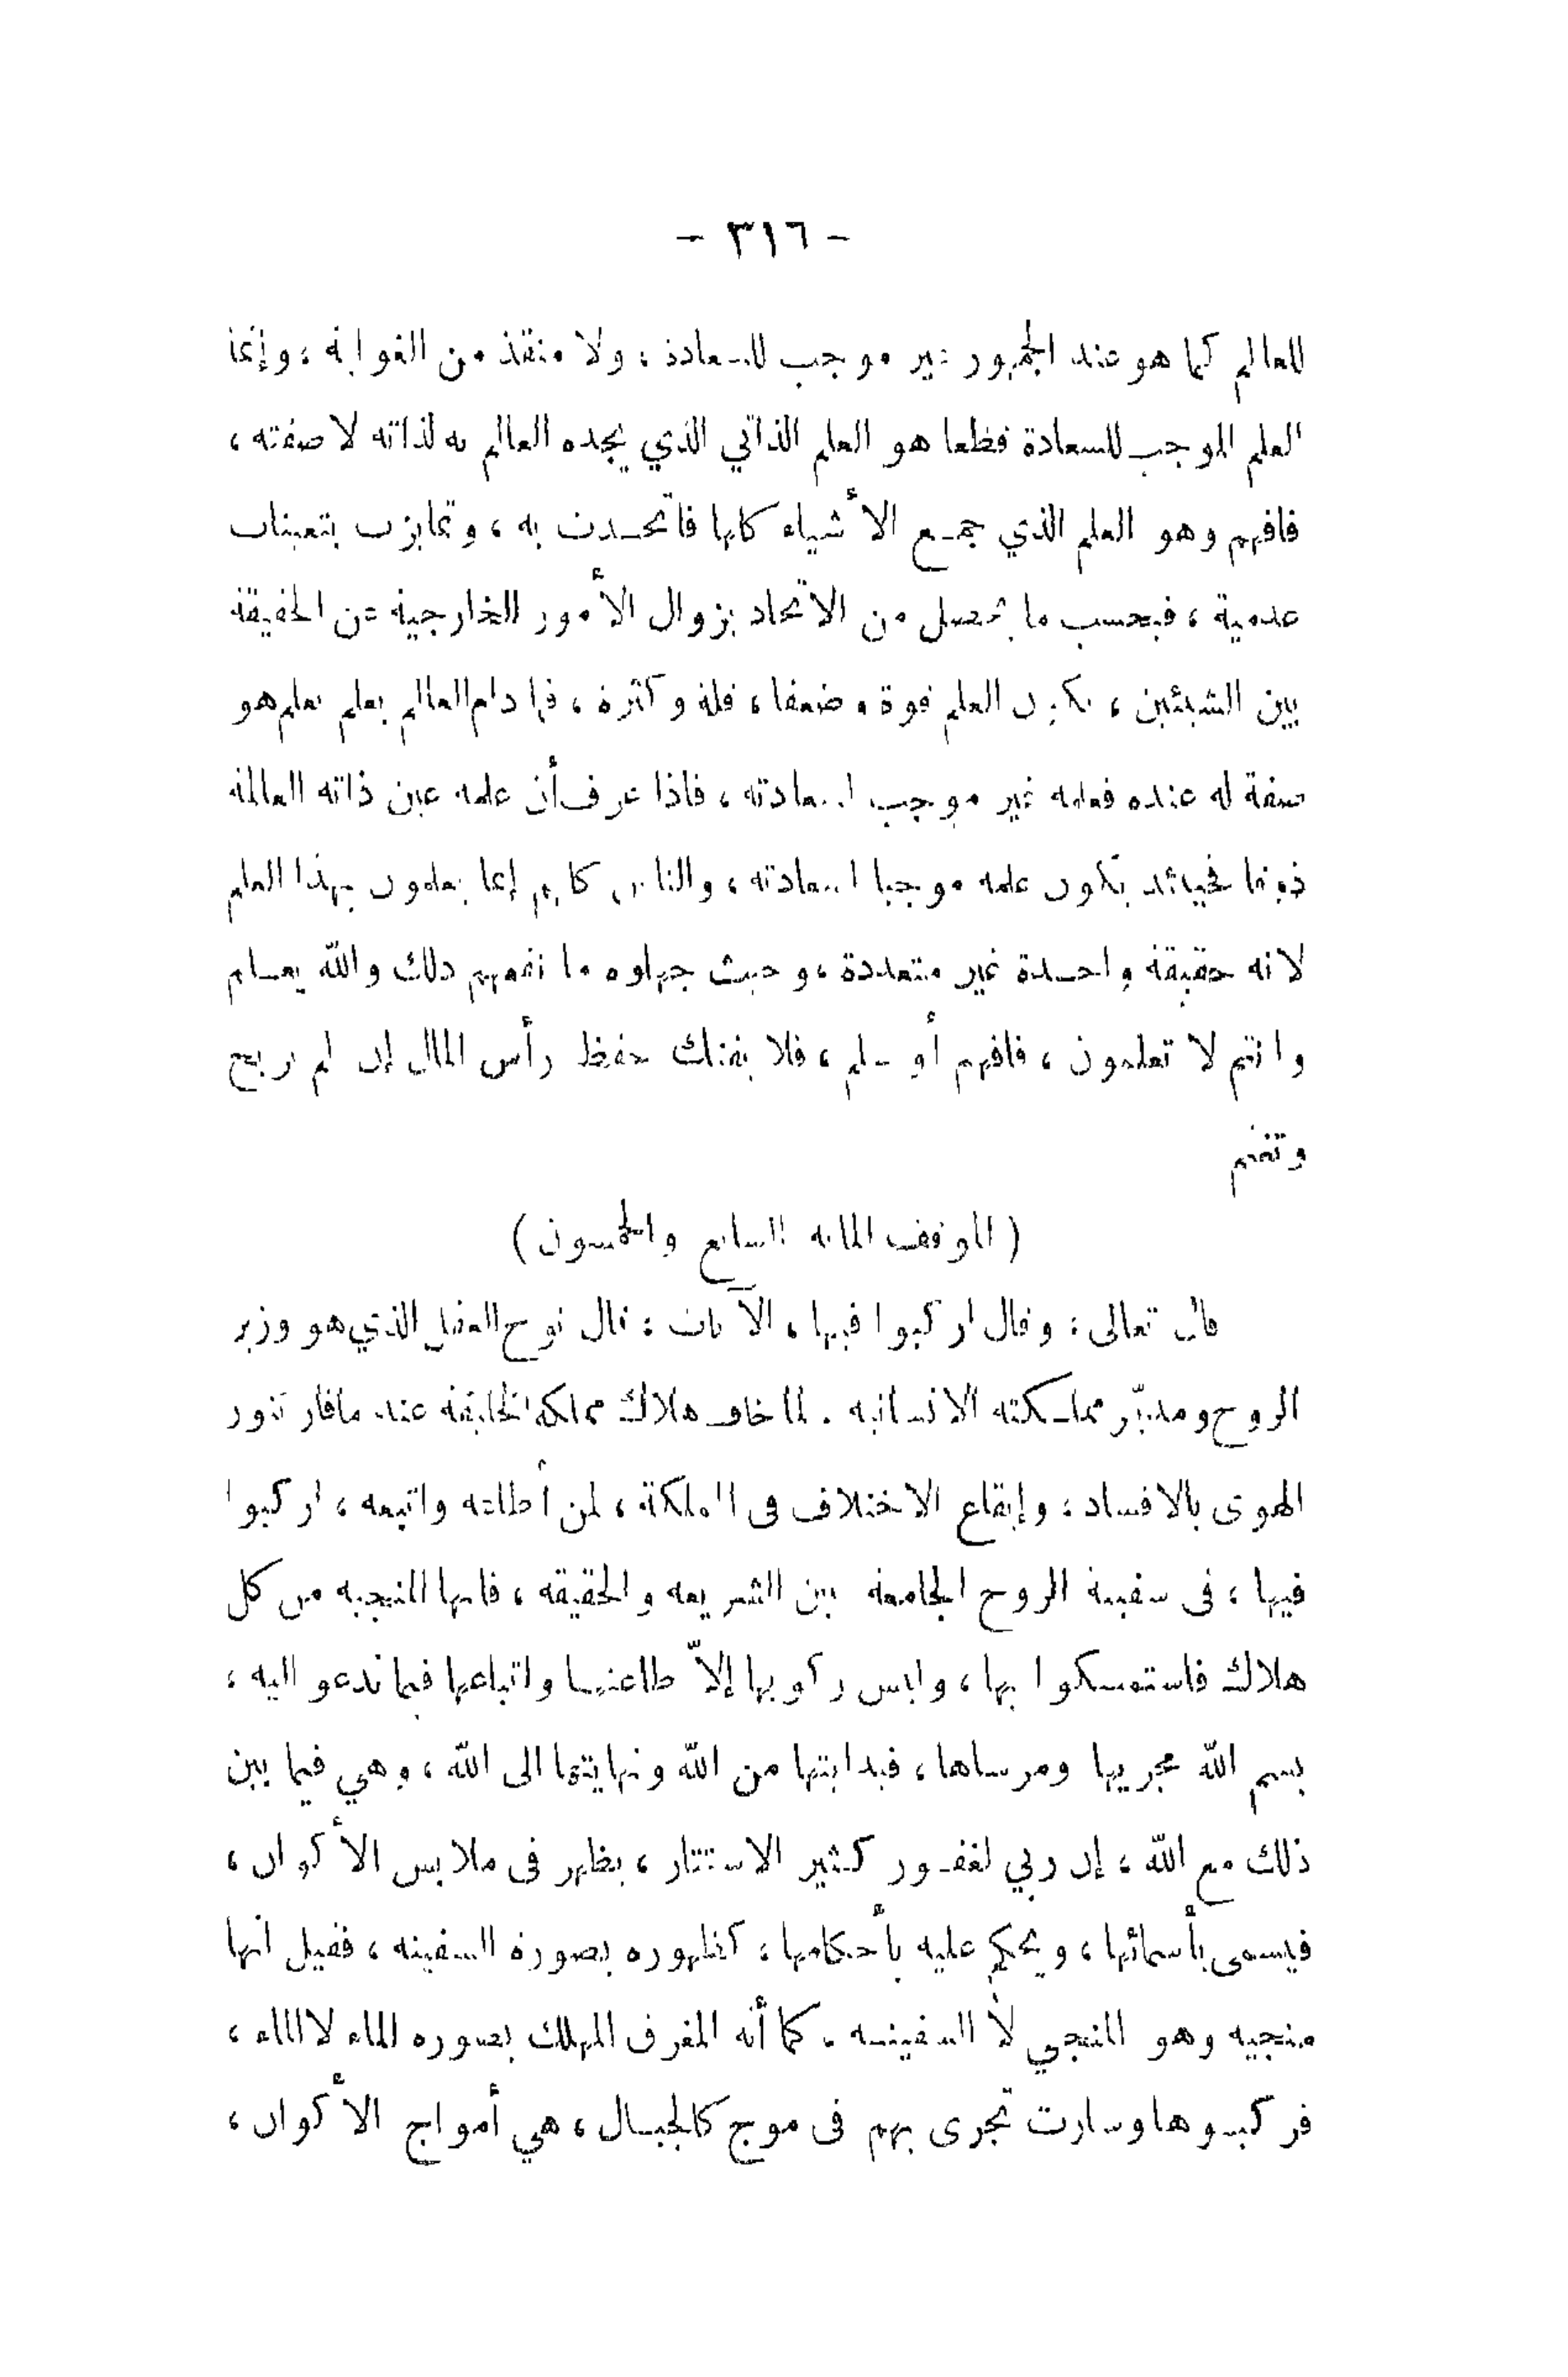 - ٣١٦ -
للعالم كما هو عند الجمهور غير موجب للسعادة ، ولا منقذ من الغواية ، وإنما
العلم الموجب للسعادة قطعا هو العلم الذاتي الذي يجده العالم به لذاته لا صفته ،
فافهم وهو العلم الذي جمع الأشياء كلها فاتحدت به ، وتمايزت بتعينات
عدمية ، فبحسب ما يحصل من الاتحاد بزوال الأمور الخارجية عن الحقيقة
بين الشيئين ، يكون العلم قوة وضعفا ، قلة وكثرة ، فما دام العالم يعلم بعلم هو
صفة له عنده فعلمه غير موجب لسعادته ، فاذا عرف أن علمه عين ذاته العالمة
ذوقا فحينئذ يكون علمه موجبا لسعادته ، والناس كلهم إنما يعلمون بهذا العلم
لانه حقيقة واحدة غير متعددة ، وحيث جهلوه ما نفعهم ذلك والله يعلم
وانتم لا تعلمون ، فافهم أو سلم ، فلا يفتك حفظ رأس المال إن لم تربح
وتغنم
( الموقف المائة السابع والخمسون )
قال تعالى : وقال اركبوا فيها ، الآيات : قال نوح العقل الذي هو وزير
الروح ومدبّر مملكته الانسانية . لما خاف هلاك مملكة الخليفة عند مافار تنور
الهوى بالافساد ، وإيقاع الاختلاف فى المملكة ، لمن أطاعه واتبعه ، اركبوا
فيها ، فى سفينة الروح الجامعة بين الشريعة والحقيقة ، فانها المنجية من كل
هلاك فاستمسكوا بها ، وليس ركوبها إلاّ طاعتها واتباعها فيما تدعو اليه ،
بسم الله مجريها ومرساها ، فبدايتها من الله ونهايتها الى الله ، وهي فيما بين
ذلك مع الله ، إن ربي لغفور كثير الاستتار ، يظهر فى ملابس الأكوان ،
فيسمى بأسمائها ، ويحكم عليه بأحكامها ، كظهوره بصورة السفينة ، فقيل انها
منجية وهو المنجي لا السفينة ، كما أنه المغرق المهلك بصورة الماء لا الماء ،
فركبوها وسارت تجرى بهم فى موج كالجبال ، هي أمواج الأكوان ،